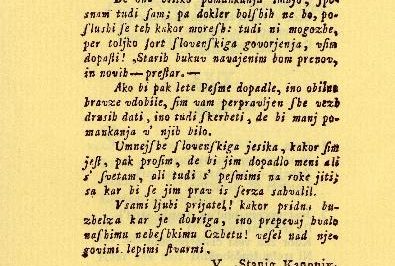 De one veliko pomankanja imajo, spo-
snam tudi sam; pa dokler bolshih ne bo, po-
slushi se teh kakor moresh: tudi ni mogozhe,
per toljko sort slovenskiga govorjenja, vsim
dopasti! „Starih bukuv navajenim bom prenov,
in novih — prestar. —
Ako bi pak lete Pesme dopadle, ino obilne
bravze vdobile, sim vam perpravljen she vezh
drusih dati, ino tudi skerbeti, de bi manj po-
mankanja v' njih bilo.
Umnejshe slovenskiga jesika, kakor sim
jest, pak prosim, de bi jim dopadlo meni ali
s' svetam, ali tudi s' pesmimi na roke jiti,
sa kar bi se jim prav is serza sahvalil.
Vsami ljubi prijatel! kakor pridna bu-
zhelza kar je dobriga, ino prepevaj hvalo
nashimu nebeshkimu Ozhetu! vesel nad nje-
govimi lepimi stvarmi.
V. Stanig Kanonik.